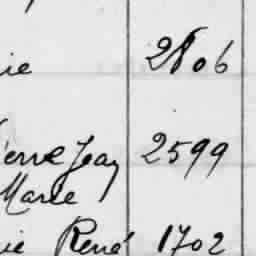 ie 2806
ierre Jean 2599
Marie
ie René 1702